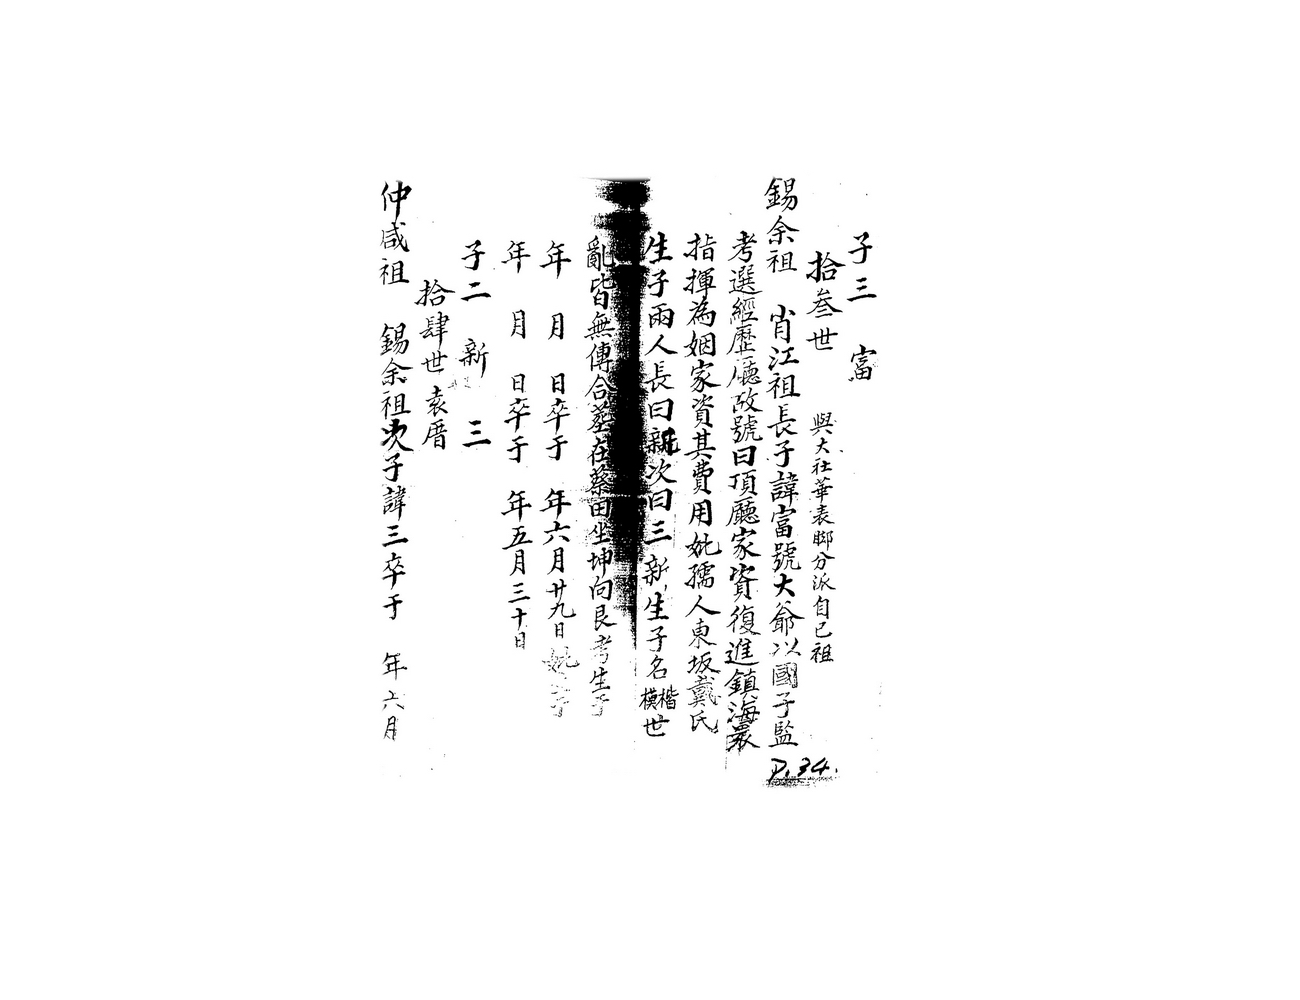 子三 富
拾叁世 與大社華表鄉分派自己祖
錫余祖 肖江祖長子諱富號大爺以國子監
考選經歷廳故號曰項廳家資復進鎮海衰
指揮為姻家資其費用妣孺人東坂戴氏
生子兩人長曰新次曰三新生子名模楷世
亂皆無傳合塟在蔡田坐坤向艮考生于
年 月 日卒于 年六月廿九日妣 于
年 月 日卒于 年五月三十日
子二 新 三
拾肆世 袁厝
仲咸祖 錫余祖次子諱三卒于 年六月
P.34.